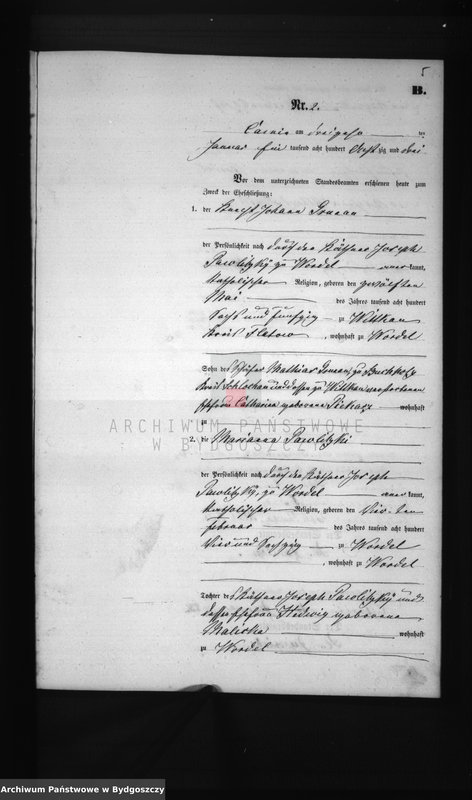 5
B.
Nr. 2.
am ten
Januar Ein tausend acht hundert Achtzig und drei
Vor dem unterzeichneten Standesbeamten erschienen heute zum
Zweck der Eheschließung:
1. der Knecht Johann
der Persönlichkeit nach durch den Käthner Joseph
Pawlitzky zu Wordel aner kannt,
katholischer Religion, geboren den zwölften
Mai des Jahres tausend acht hundert
Sechs und fünfzig zu Wittkau
Kreis Flatow, wohnhaft zu Wordel
Sohn des Schäfer Mathias zu Buchholz
Kreis Schlochau und dessen zu Wittkau verstorbenen
Ehefrau Catharina geborene wohnhaft
zu
2. die Marianna Pawlitzki
der Persönlichkeit nach durch den Käthner Joseph
Pawlitzky, zu Wordel aner kannt,
katholischer Religion, geboren den Vier ten
Februar des Jahres tausend acht hundert
Vier und Sechzig zu Wordel
, wohnhaft zu Wordel
Tochter des Käthner Joseph Pawlitzky und
dessen Ehefrau Hedwig geborene
Maliske wohnhaft
zu Wordel
ARCHIWUM PAŃSTWOWE
W BYDGOSZCZY
Archiwum Państwowe w Bydgoszczy